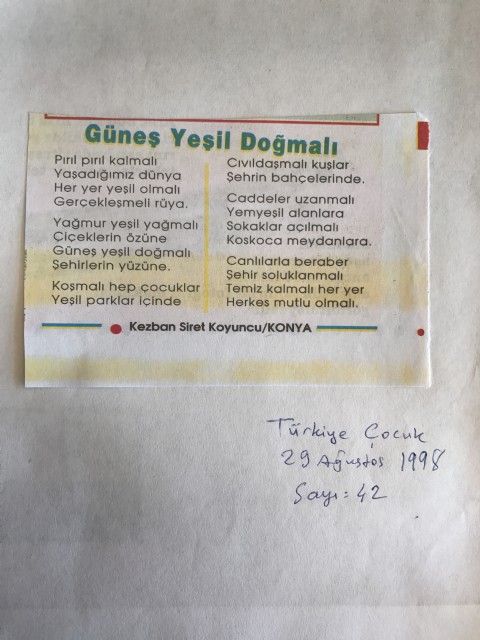 Güneş Yeşil Doğmalı
Pırıl pırıl kalmalı
Yaşadığımız dünya
Her yer yeşil olmalı
Gerçekleşmeli rüya.
Yağmur yeşil yağmalı
Çiçeklerin özüne
Güneş yeşil doğmalı
Şehirlerin yüzüne.
Koşmalı hep çocuklar
Yeşil parklar içinde
Cıvıldaşmalı kuşlar
Şehrin bahçelerinde.
Caddeler uzanmalı
Yemyeşil alanlara
Sokaklar açılmalı
Koskoca meydanlara.
Canlılarla beraber
Şehir soluklanmalı
Temiz kalmalı her yer
Herkes mutlu olmalı.
Kezban Siret Koyuncu/KONYA
Türkiye Çocuk
29 Ağustos 1998
Sayı: 42